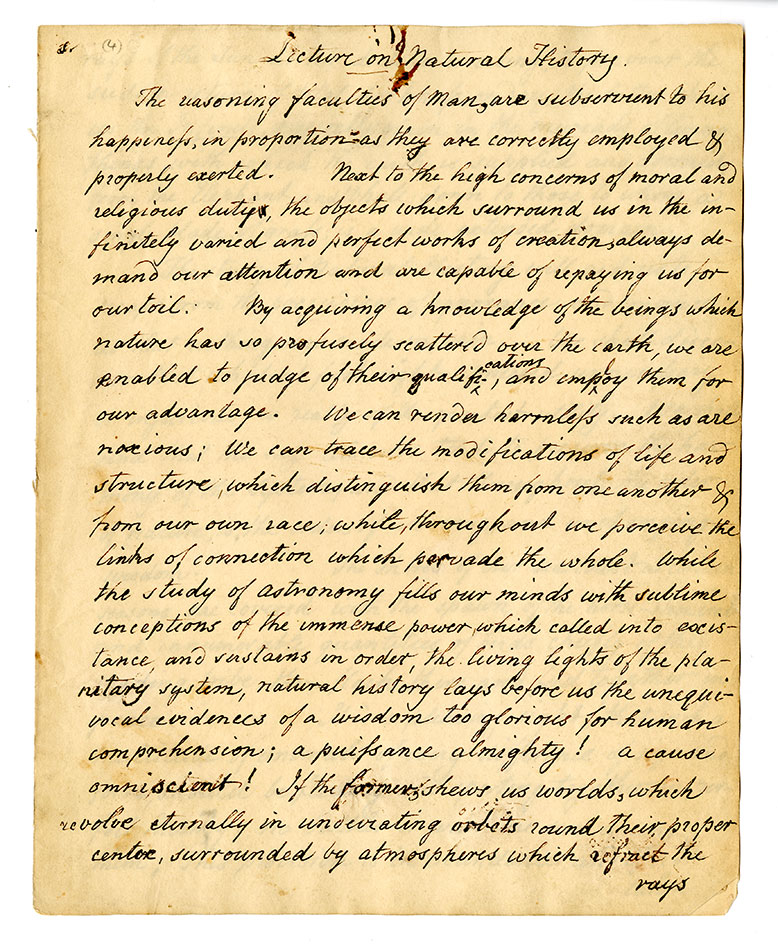 (4)
Lecture on Natural History.
The reasoning faculties of Man, are subservient to his
happineſs, in proportion as they are correctly employed &
properly exerted. Next to the high concerns of moral and
religious duty, the objects which surround us in the in-
finitely varied and perfect works of creation, always de-
mand our attention and are capable of repaying us for
our toil. By acquiring a knowledge of the beings which
nature has so profusely scattered over the earth, we are
enabled to judge of their qualifi-cations, and employ them for
our advantage. We can render harmleſs such as are
noxious; We can trace the modifications of life and
structure, which distinguish them from one another &
from our own race; while, throughout we perceive the
links of connection which pervade the whole. While
the study of astronomy fills our minds with sublime
conceptions of the immense power, which called into excis-
tance, and sustains in order, the living lights of the pla-
nitary system, natural history lays before us the unequi-
vocal evidences of a wisdom too glorious for human
comprehension; a puiſsance almighty! a cause
omniscient! If the former, shews us worlds, which
revolve eternally in undeviating orbets round their proper
center, surrounded by atmospheres which refract the
rays